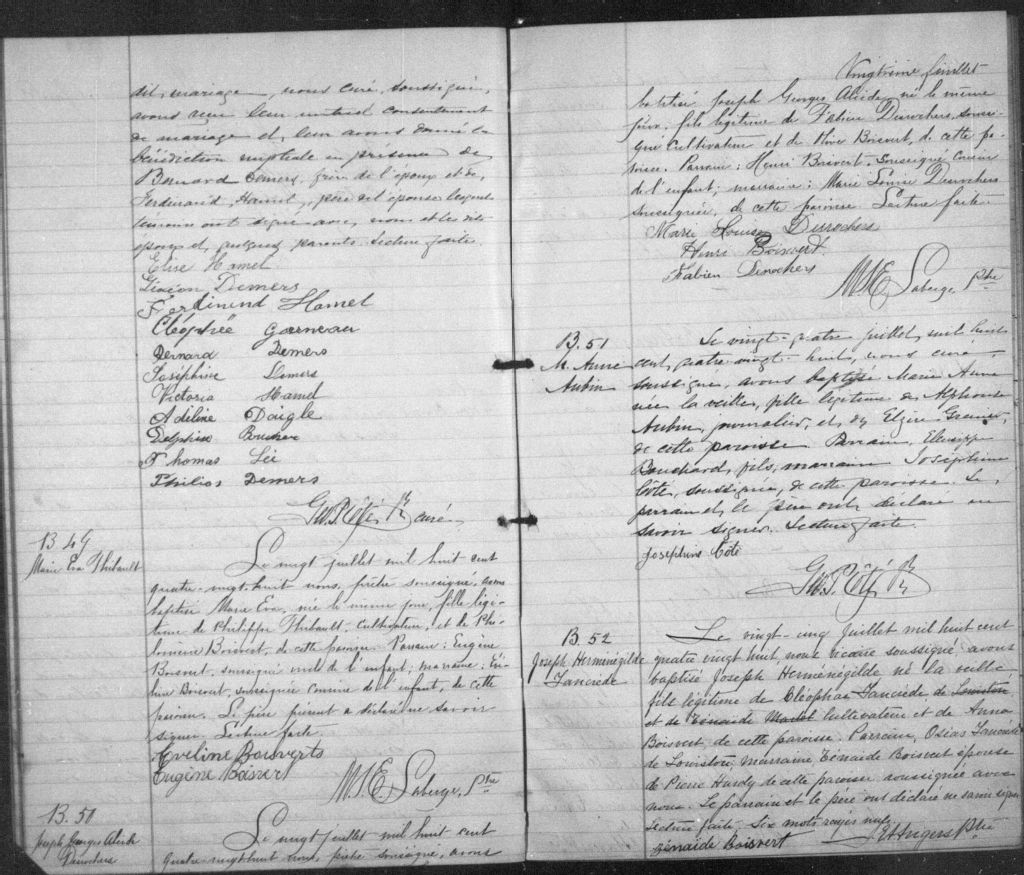 dit, mariage, nous curé, soussigné,
avons reçu leur mutuel consentement
de mariage et, leur avons donné la
bénédiction nuptiale en présence de
Bernard Demers, frère de l'époux et de
Ferdinand, Hamel, père de l'épouse lesquels
témoins ont signé avec, nous et les dits
époux et quelques parents. Lecture faite.
Elise Hamel
Demers
Ferdinend Hamel
Cléophée Garneau
Bernard Demers
Joséphine Demers
Victoria Hamel
Adéline Daigle
Delphine
Thomas
Philias Demers
Geo. P. Côté Ptr curé
B 49
Marie Eva Thibault
Le vingt juillet mil huit cent
quatre-vingt-huit nous, prêtre soussigné, avons
baptisé Marie Eva, née le même jour, fille légi-
time de Philippe Thibault, cultivateur, et de Phi-
lomène Boisvert, de cette paroisse. Parrain: Eugène
Boisvert, soussigné oncle de l'enfant; marraine: Eve-
line Boisvert, soussignée cousine de l'enfant, de cette
paroisse. Le père présent a déclaré ne savoir
signer. Lecture faite.
Eveline Boisverts
Eugène
Laberge, Ptre
B. 50
Joseph Georges Alcide
Desrochers
Le vingt juillet mil huit cent
quatre-vingt-huit nous, prêtre soussigné, avons
feuillet
baptisé Joseph Georges Alcide né le même
jour, fils légitime de Fabien Desrochers, soussi-
gné cultivateur et de Boisvert, de cette pa-
roisse. Parrain: Henri Boisvert, soussigné cousin
de l'enfant; marraine: Marie Louise Desrochers
soussignée, de cette paroisse. Lecture faite.
Marie Louise Desrochers
Henri Boisvert
Fabien Desrochers
Laberge, Ptre
B. 51
M. Anne
Aubin
Le vingt-quatre juillet, mil huit
cent, quatre-vingt-huit, nous curé
soussigné, avons baptisé Marie Anne
née la veille, fille légitime de Alphonse
Aubin, journalier, et, de Elzire Grenier,
de cette paroisse Parrain,
Bouchard, fils, marraine Joséphine
Côté, soussignée, de cette paroisse. Le
parrain et, le père ont, déclaré ne
savoir signer. Lecture faite.
Josephine Côté
Geo. P. Côté Ptr
B 52
Joseph Herménégilde
Lanciède
Le vingt-cinq juillet mil huit cent
quatre vingt huit, nous vicaire soussigné avons
baptisé Joseph Herménégilde né la veille
fils légitime de Cléophas Lanciède de Louiston
et de Zénaide Martel cultivateur et de Anna
Boisvert de cette paroisse. Parrain, Osias
de Louiston, Marraine, Zénaide Boisvert épouse
de Pierre Hardy de cette paroisse soussignée avec
nous. Le parrain et le père ont déclaré ne savoir signer
Lecture faite. Six mots rayés nuls.
Zénaide Boisvert
Angers Ptre